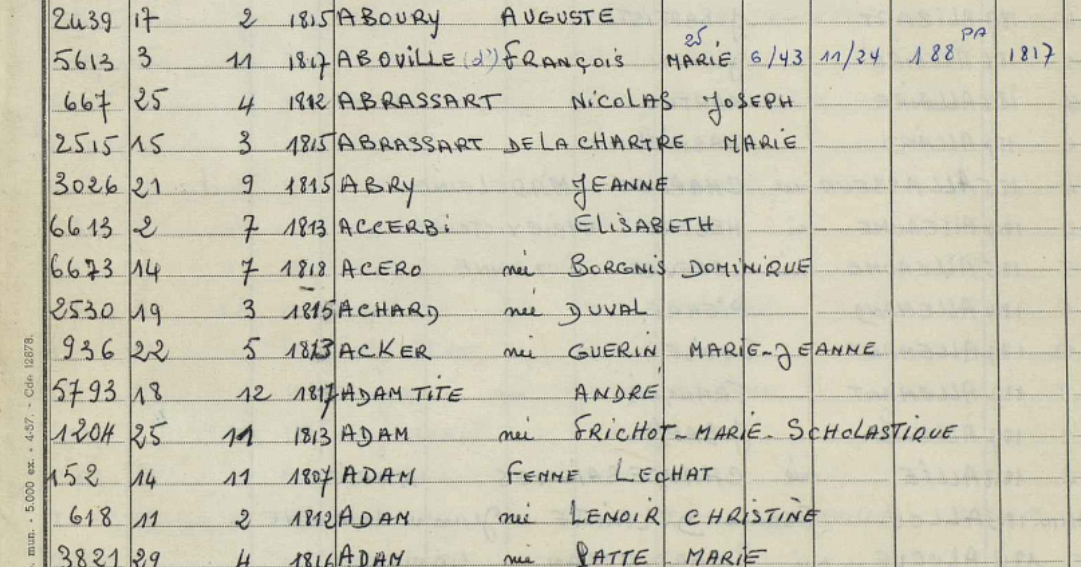 2439 17 2 1815 ABOURY AUGUSTE
25 PA
5613 3 11 1817 ABOVILLE (d') FRANÇOIS MARIE 6/43 11/24 188 1817
667 25 4 1812 ABRASSART NICOLAS JOSEPH
2515 15 3 1815 ABRASSART DELACHARTRE MARIE
3026 21 9 1815 ABRY JEANNE
6613 2 7 1813 ACCERBi ELISABETH
6673 14 7 1818 ACERO née BORGNIS DOMINIQUE
2530 19 3 1815 ACHARD née DUVAL
936 22 5 1813 ACKER née GUERIN MARIE-JEANNE
5793 18 12 1817 ADAM TITE ANDRÉ
1204 25 11 1813 ADAM née FRICHOT-MARIE-SCHOLASTIQUE
152 14 11 1807 ADAM FENNE LECHAT
618 11 2 1812 ADAM née LENOIR CHRISTINE
3821 29 4 1816 ADAM née PATTE MARIE
mun. - 5.000 ex. - 4-57. - Cde 12878.